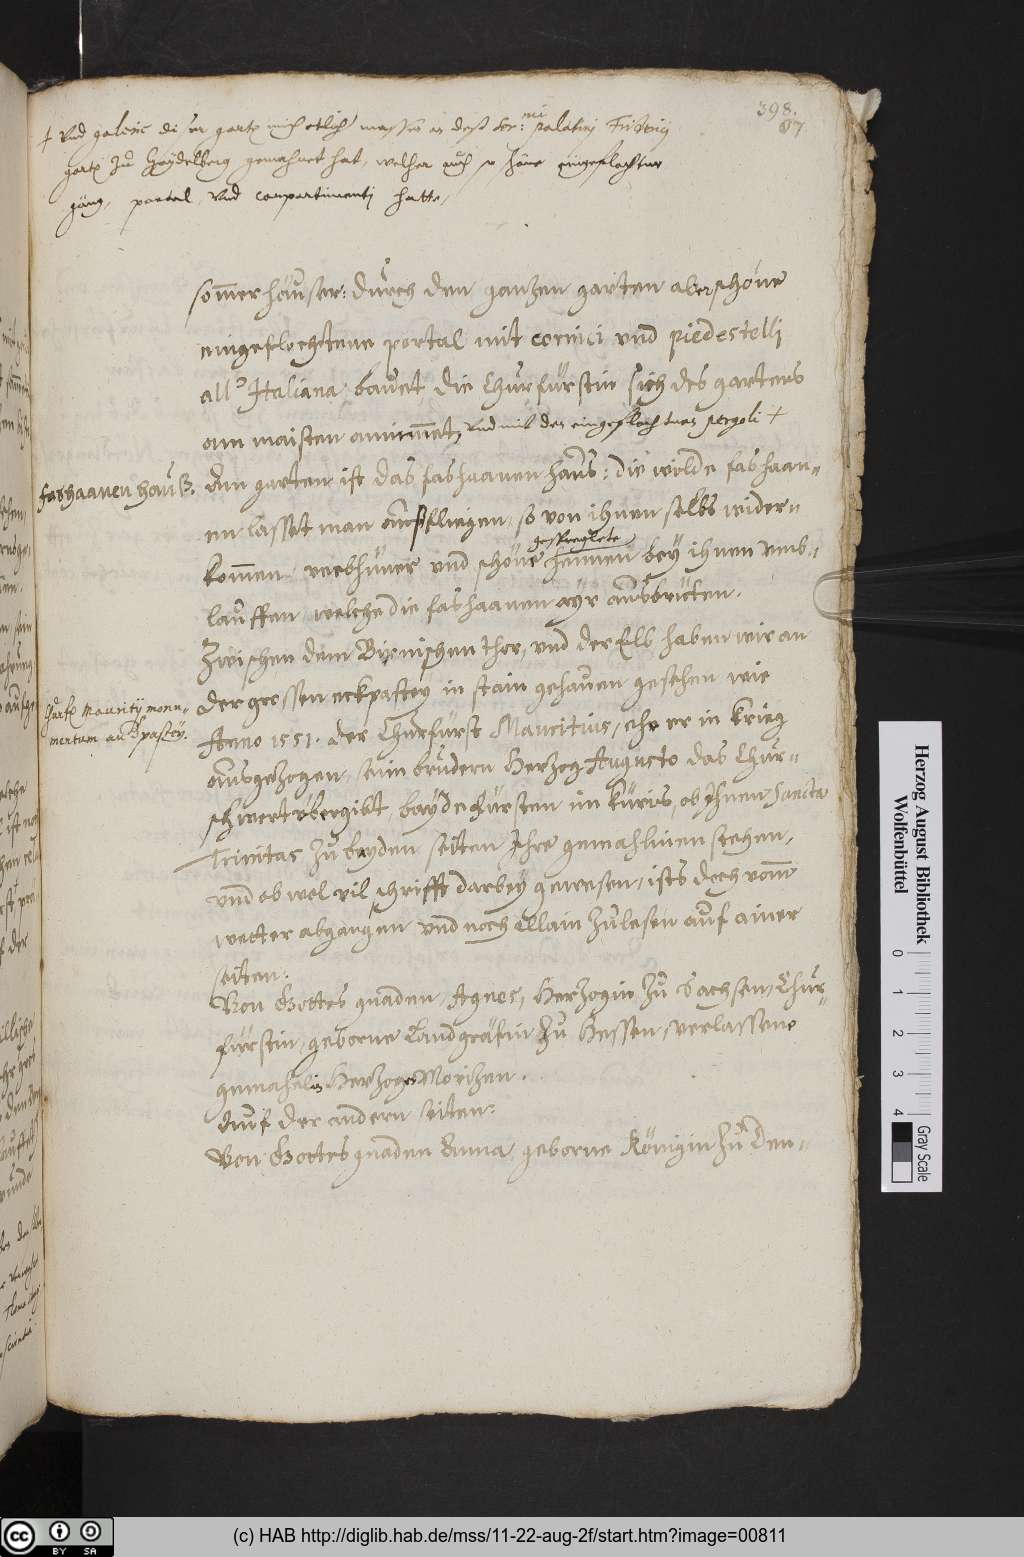 398.
87
+ Vnd galerie diser gart mich etlicher massen an dess Ser:mi Palatini Friderici
gart zu Haydelberg gemahnet hat, welcher auch so schöne eingeflochtne
gäng, portal, vnd compartimenti hatte,
som̅erheüser: durch den ganzen garten aber schöne
eingeflochtene portal mit cornici und piedestelli
all' Italiana, bawet die Churfürstin sich des gartens
am maisten annim̅et, vnd mit den eingeflochtnen pergoli +
fashaanen hauß.
Am garten ist das fashaanen haus: die wilde fashaan-
en lasset man ausfliegen, so von ihnen selbs widern
gesprenglete
kom̅en, rebhüner und schöne hennen bey ihnen umb-
lauffen, welche die fashaanen ayr ausbrüten.
Zwischen dem Birnischen thor, und der Elb haben wir an
der grossen eckpastey in stain gehauen gesehen wie
Churf. Mauritij monu-
mentum auf pastey.
Anno 1551. der Churfürst Mauritius, ehe er in krieg
ausgezogen, seim brudern Herzog Augusto das Chur-
schwert übergibt, bayde fürsten im küriss, ob Ihnen Sancta
Trinitas, zu bayden seiten Ihre gemahlinen stehen,
und ob wol vil schrifft darbey gewesen, ists doch vom̅
wetter abgangen und noch allain zulesen auf ainer
seiten:
Von Gottes gnaden, Agnes, Herzogin zu Sachsen, Chur-
fürstin, geborne Landgräfin zu Hessen, verlassene
gemahelin Herzoges Morizen.
Auf der andern seiten:
Von Gottes gnaden Anna, geborne Königin zu Den-
Herzog August Bibliothek
Wolfenbüttel
0 1 2 3 4
Gray Scale
cc BY SA
(c) HAB http://diglib.hab.de/mss/11-22-aug-2f/start.htm?image=00811